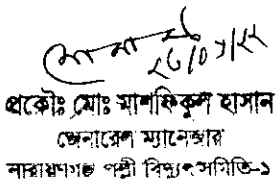 ২৬/০৯/২২
প্রকৌঃ মোঃ মাশফিকুল হাসান
জেনারেল ম্যানেজার
নারায়ণগঞ্জ পল্লী বিদ্যুৎ সমিতি-১